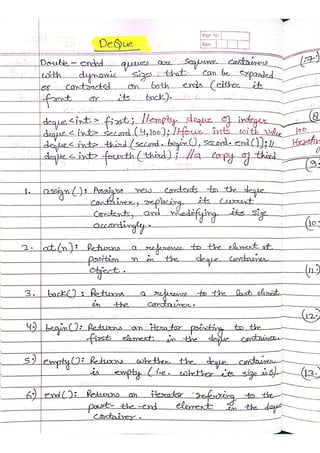 DeQue
Page No:
Date
Double-ended queues are sequence containers
with dynamic sizes that can be expanded
or contracted on both ends (either its
front or its back).
deque<int> first; //empty deque of integer
deque<int> second (4,100); //four ints with value 100
deque<int> third (second.begin(), second.end()); // Iterating
deque<int> fourth (third); // a copy of third
1. assign(): Assigns new contents to the deque
container, replacing its current
contents, and modifying its size
accordingly.
2. at(n): Returns a reference to the element at
position n in the deque container
object.
3. back(): Returns a reference to the last element
in the container.
4) begin(): Returns an iterator pointing to the
first element in the deque container.
5) empty(): Returns whether the deque container
is empty (i.e. whether its size is 0).
6) end(): Returns an iterator referring to the
past-the-end element in the deque
container.
(7.)
(8
(9.
(10.
(11.)
(13.